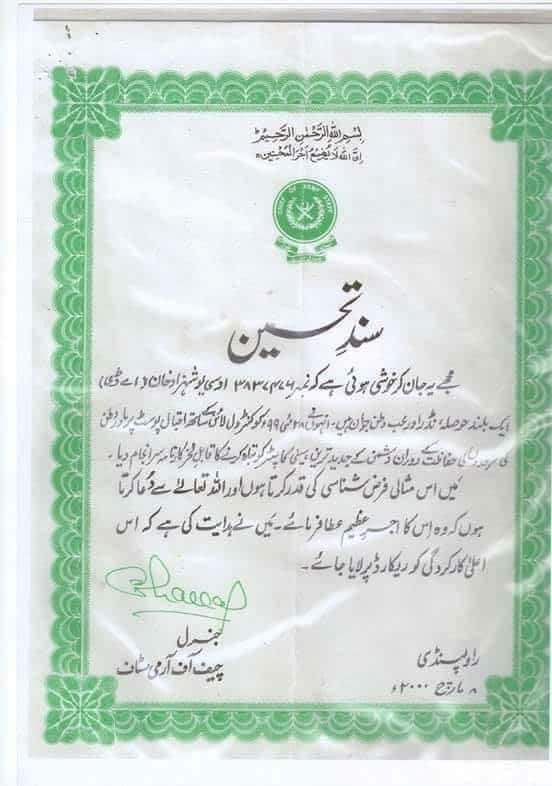 بسم اللہ الرحمٰن الرحیم
ان اللہ لا یضیع اجر المحسنین
CHIEF OF ARMY STAFF
سندِ تحسین
مجھے یہ جان کر خوشی ہوئی ہے کہ نمبر ۳۸۳۷۴۷۶ او سی یو شہزاد خان (اے ڈی)
ایک بلند حوصلہ نڈر اور محب وطن جوان ہیں۔ انہوں نے ۲۸ مئی ۹۹ کو کنٹرول لائن کے ساتھ اقبال پوسٹ پر مادر وطن
کی سرحدوں کی حفاظت کے دوران دشمن کے جدید ترین ہیلی کاپٹر کو تباہ کرنے کا قابل فخر کارنامہ سرانجام دیا۔
میں اس مثالی فرض شناسی کی قدر کرتا ہوں اور اللہ تعالےٰ سے دُعا کرتا
ہوں کہ وہ اس کا اجرِ عظیم عطا فرمائے۔ میں نے ہدایت کی ہے کہ اس
اعلیٰ کارکردگی کو ریکارڈ پر لایا جائے۔
جنرل
چیف آف آرمی سٹاف
راولپنڈی
۸ مارچ ۲۰۰۰ء